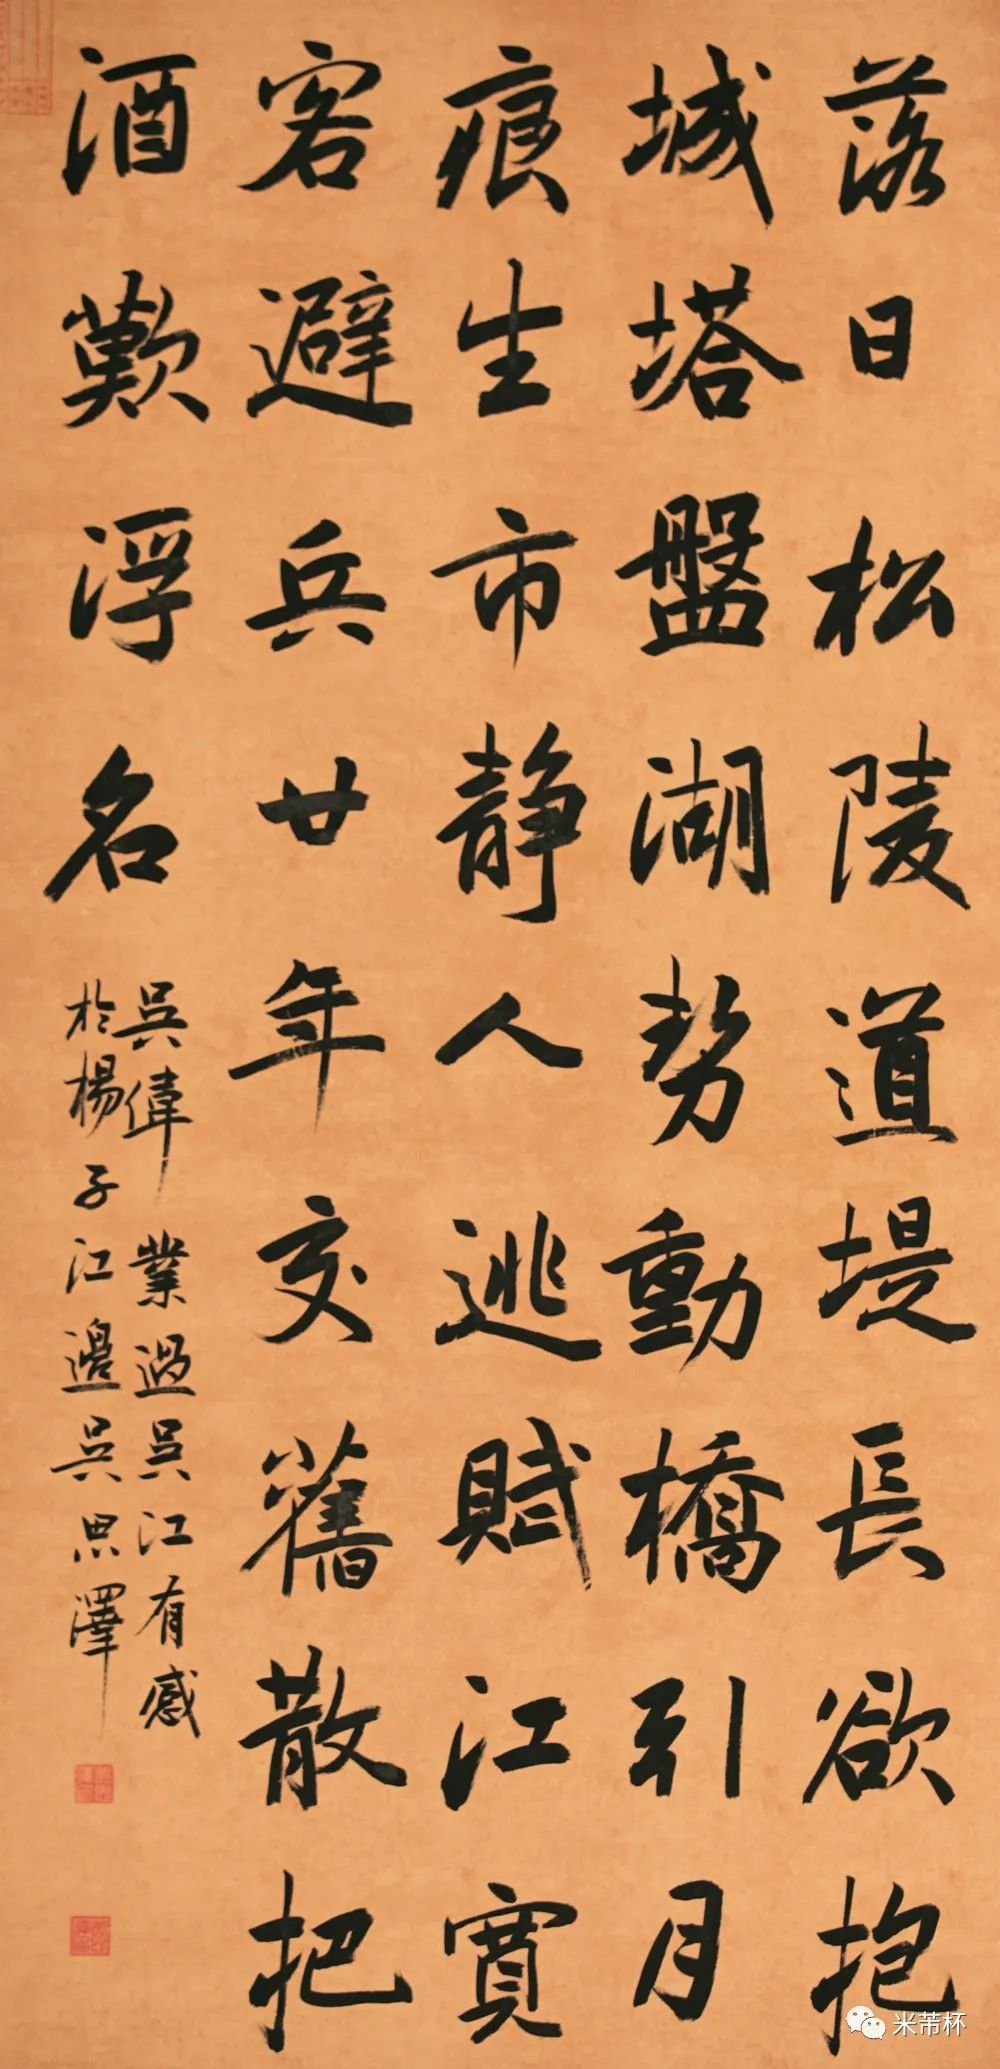 落日松陵道堤長欲抱
城塔盤湖勢動橋引月
痕生市静人逃賦江寬
客避兵廿年交舊散把
酒歎浮名
吳偉業過吳江有感
於楊子江邊吳思澤
米芾杯